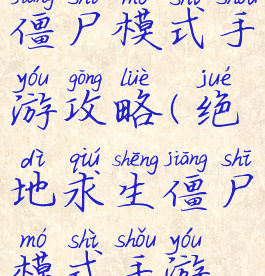 jiāng shī mó shì shǒu
僵尸模式手
yóu gōng lüè jué
游攻略(绝
dì qiú shēng jiāng shī
地求生僵尸
mó shì shǒu yóu
模式手游